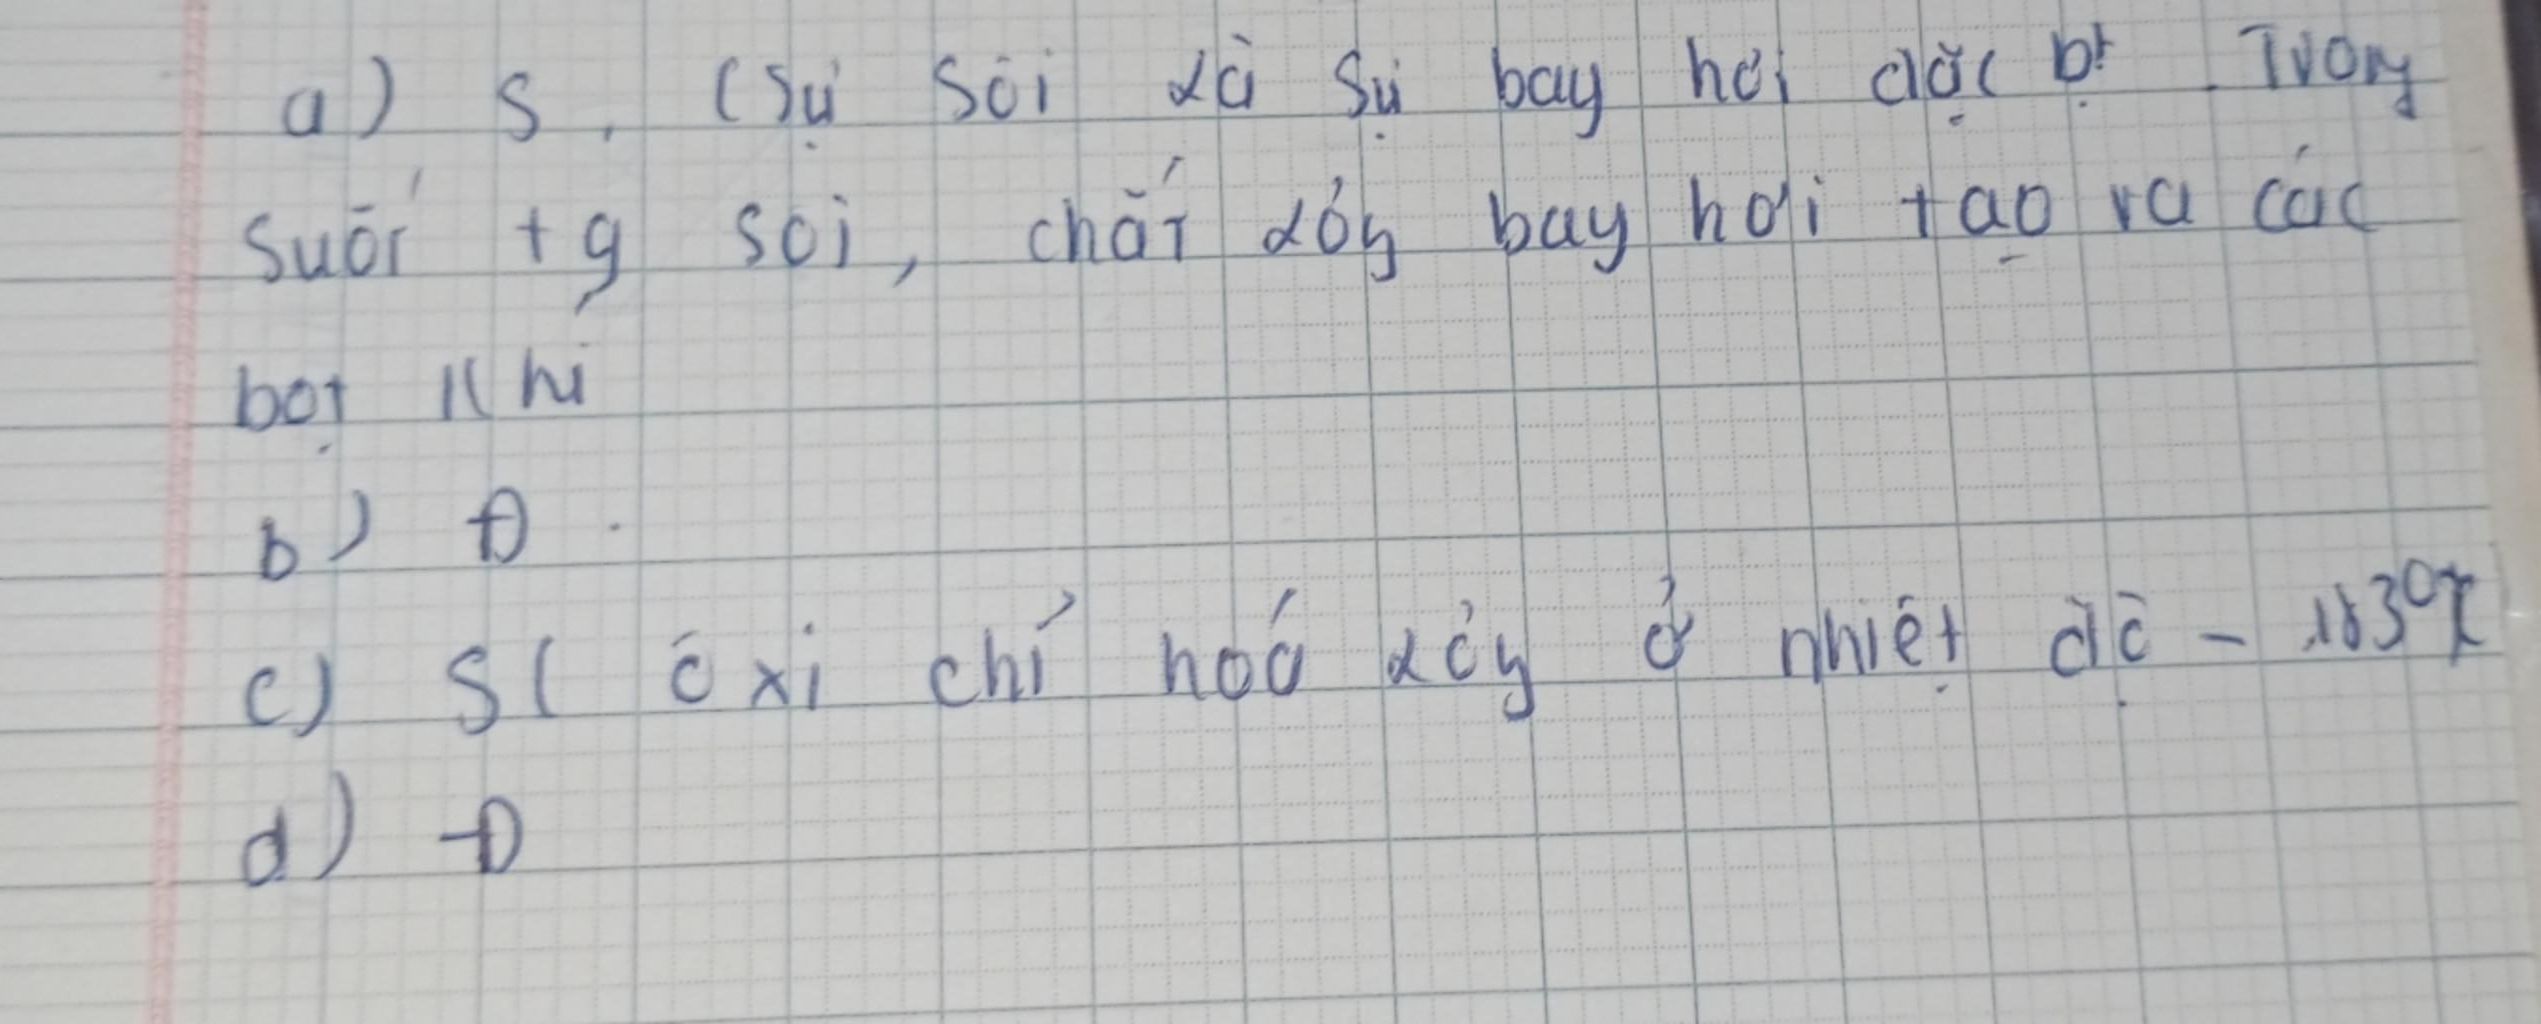 a) S. (Sự sôi là sự bay hơi đặc bt. Trong
suốt tg sôi, chất lỏng bay hơi tạo ra các
bọt khí
b) Đ.
c) S ( ôxi chỉ hoá lỏng ở nhiệt độ - 183°
d) Đ